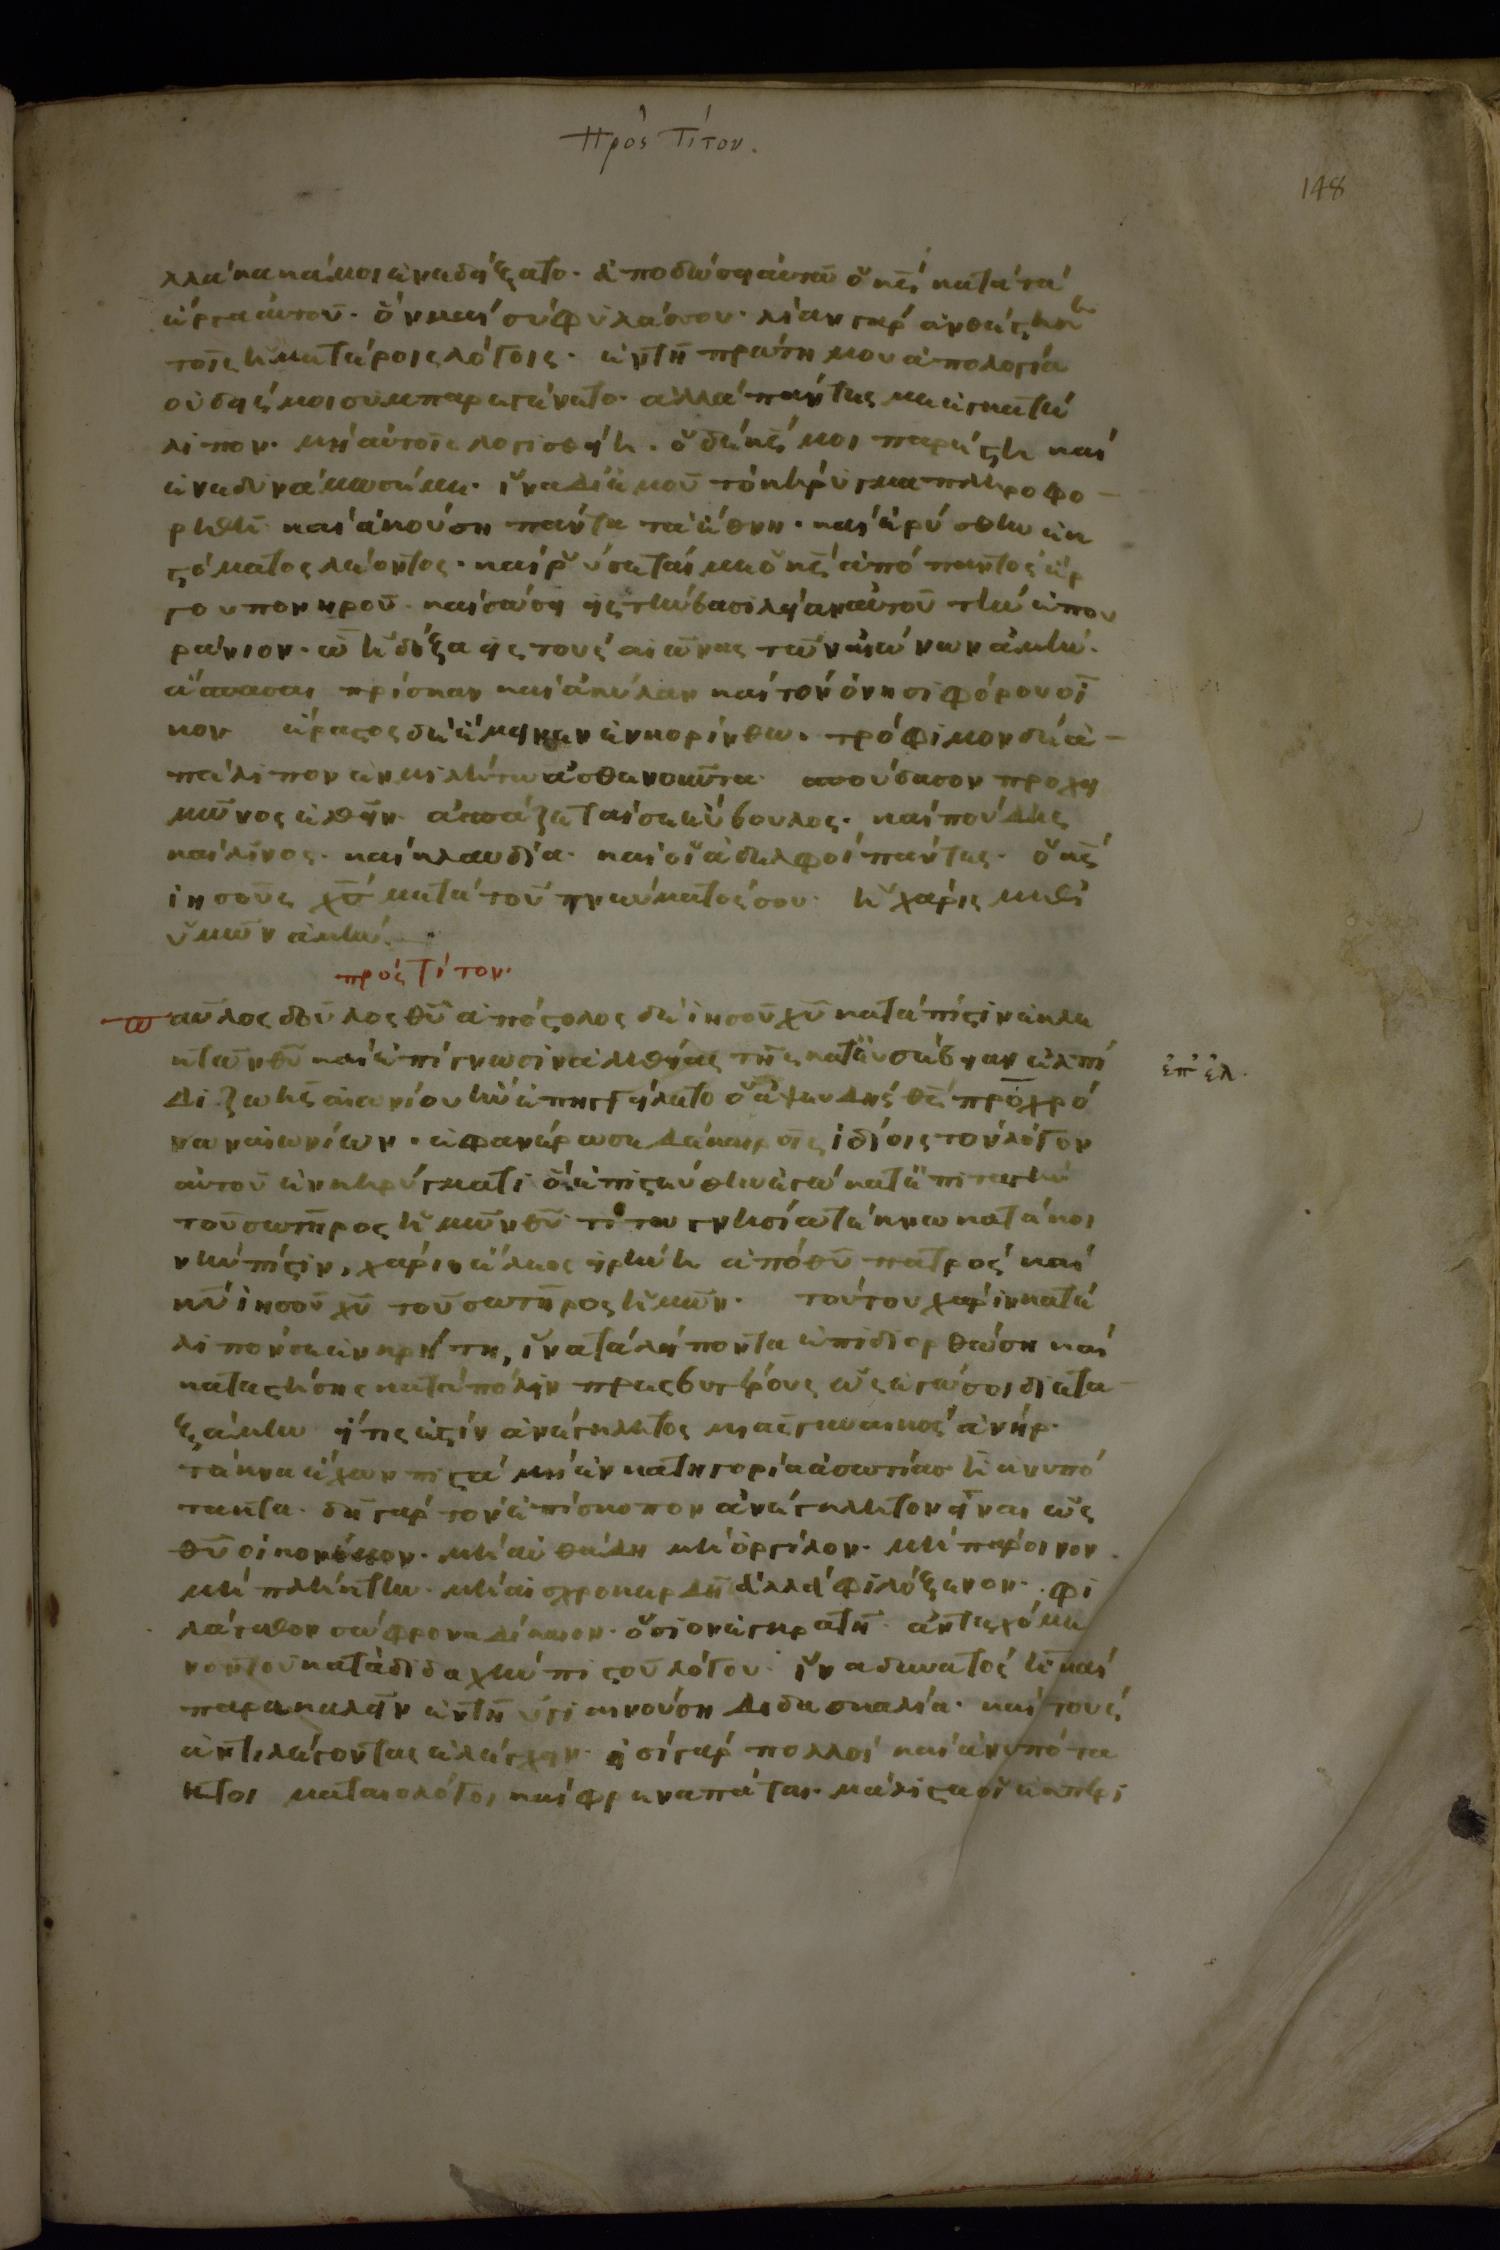 Πρὸς Τίτον.
148
λλά κακά μοι ἐνεδείξατο· ἀποδώσει αὐτῶ ὁ κς κατὰ τὰ
ἔργα αὐτοῦ· ὃν καὶ σὺ φυλάσσου· λίαν γὰρ ἀνθέστηκε
τοῖς ἡμετέροις λόγοις· ἐν τῆ πρώτη μου ἀπολογία
οὐδείς μοι συμπαρεγένετο· ἀλλὰ πάντες με ἐγκατέ
λιπον· μὴ αὐτοῖς λογισθείη· ὁ δὲ κς μοι παρέστη καὶ
ἐνεδυνάμωσέ με· ἵνα δι' ἐμοῦ τὸ κήρυγμα πληροφο
ρηθῆ καὶ ἀκούση πάντα τὰ ἔθνη· καὶ ἐρύσθην ἐκ
στόματος λέοντος· καὶ ῥύσεταί με ὁ κς ἀπὸ παντὸς ἔρ
γου πονηροῦ· καὶ σώσει εἰς τὴν βασιλείαν αὐτοῦ τὴν ἐπου
ράνιον· ὧ ἡ δόξα εἰς τοὺς αἰῶνας τῶν αἰώνων ἀμήν·
ἄσπασαι πρίσκαν καὶ ἀκύλαν καὶ τὸν ὀνησιφόρου οἶ
κον ἔραστος δὲ ἔμεινεν ἐν κορίνθω· τρόφιμον δὲ ἀ
πέλιπον ἐν μιλήτω ἀσθενοῦντα· σπούδασον πρὸ χει
μῶνος ἐλθεῖν· ἀσπάζεταί σε εὔβουλος· καὶ πούδης
καὶ λῖνος· καὶ κλαυδία· καὶ οἱ ἀδελφοὶ πάντες· ὁ κς
ἰησοῦς χς μετὰ τοῦ πνεύματός σου· ἡ χάρις μεθ'
ὑμῶν ἀμήν·
πρὸς Τίτον·
παῦλος δοῦλος θυ ἀπόστολος δὲ ἰησοῦ χυ κατὰ πίστιν ἐκλε
κτῶν θυ καὶ ἐπίγνωσιν ἀληθείας τῆς κατ' εὐσέβειαν ἐλπί
ἐπ' ἐλ·
δι ζωῆς αἰωνίου ἣν ἐπηγγείλατο ὁ ἀψευδὴς θς πρὸ χρό
νων αἰωνίων· ἐφανέρωσε δὲ καιροῖς ἰδίοις τὸν λόγον
αὐτοῦ ἐν κηρύγματι ὃ ἐπιστεύθην ἐγὼ κατ' ἐπιταγὴν
τοῦ σωτῆρος ἡμῶν θυ τίτω γνησίω τέκνω κατὰ κοι
νὴν πίστιν, χάρις ἔλεος εἰρήνη ἀπὸ θυ πατρὸς καὶ
κυ ἰησοῦ χυ τοῦ σωτῆρος ἡμῶν· τούτου χάριν κατέ
λιπόν σε ἐν κρήτη, ἵνα τὰ λείποντα ἐπιδιορθώση καὶ
καταστήσης κατὰ πόλιν πρεσβυτέρους ὡς ἐγώ σοι διετα
ξάμην εἴ τις ἐστὶν ἀνέγκλητος μιᾶς γυναικὸς ἀνήρ·
τέκνα ἔχων πιστὰ μὴ ἐν κατηγορία ἀσωτίας ἢ ἀνυπό
τακτα· δεῖ γὰρ τὸν ἐπίσκοπον ἀνέγκλητον εἶναι ὡς
θυ οἰκονόμον· μὴ αὐθάδη μὴ ὀργίλον· μὴ πάροινον
μὴ πλήκτην· μὴ αἰσχροκερδῆ ἀλλὰ φιλόξενον· φι
λάγαθον σώφρονα δίκαιον· ὅσιον ἐγκρατῆ· ἀντεχόμε
νον τοῦ κατὰ διδαχὴν πιστοῦ λόγου· ἵνα δυνατὸς ἦ καὶ
παρακαλεῖν ἐν τῆ ὑγιαινούση διδασκαλία· καὶ τοὺς
ἀντιλέγοντας ἐλέγχειν· εἰσὶ γὰρ πολλοὶ καὶ ἀνυπότα
κτοι ματαιολόγοι καὶ φρεναπάται· μάλιστα οἱ ἐκ περι